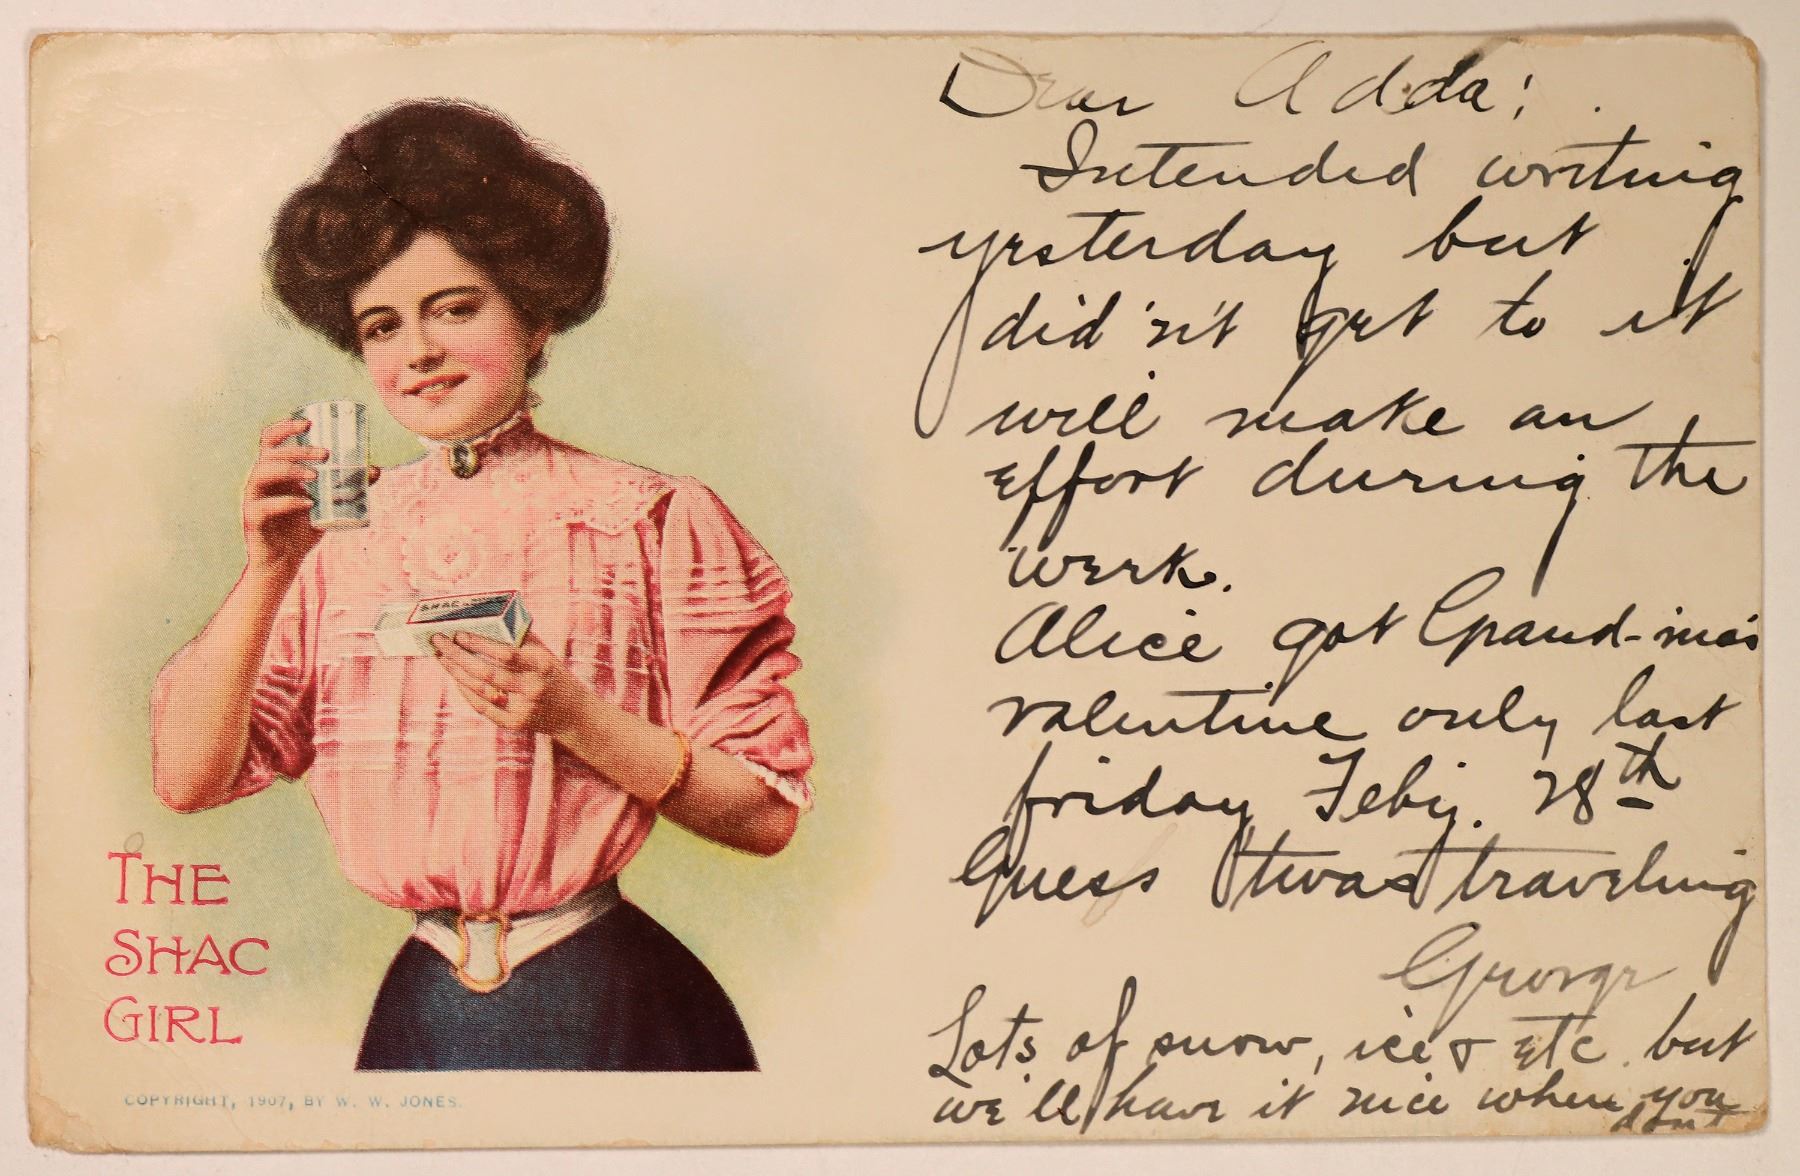 THE
SHAC
GIRL
COPYRIGHT, 1907, BY W. W. JONES.
SHAC
Dear Adda;
Intended writing
yesterday but
did'n't get to it
will make an
effort during the
week.
Alice got Grand-ma's
valentine only last
friday Feby. 28th
Guess 'twas traveling
George
Lots of snow, ice & etc. but
we'll have it nice when you